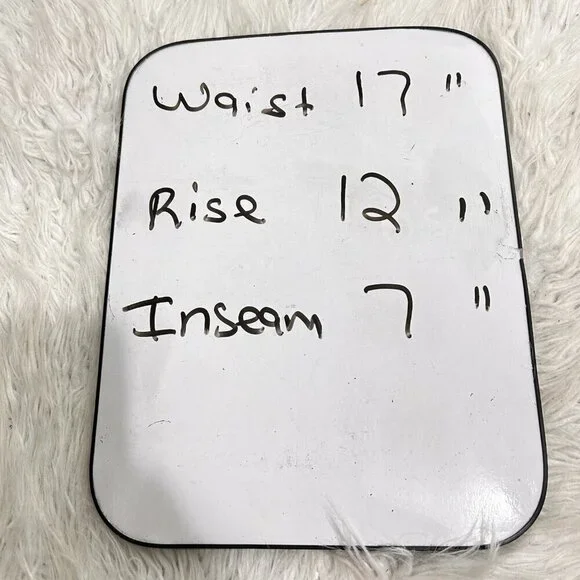 Waist 17 "
Rise 12 "
Inseam 7 "